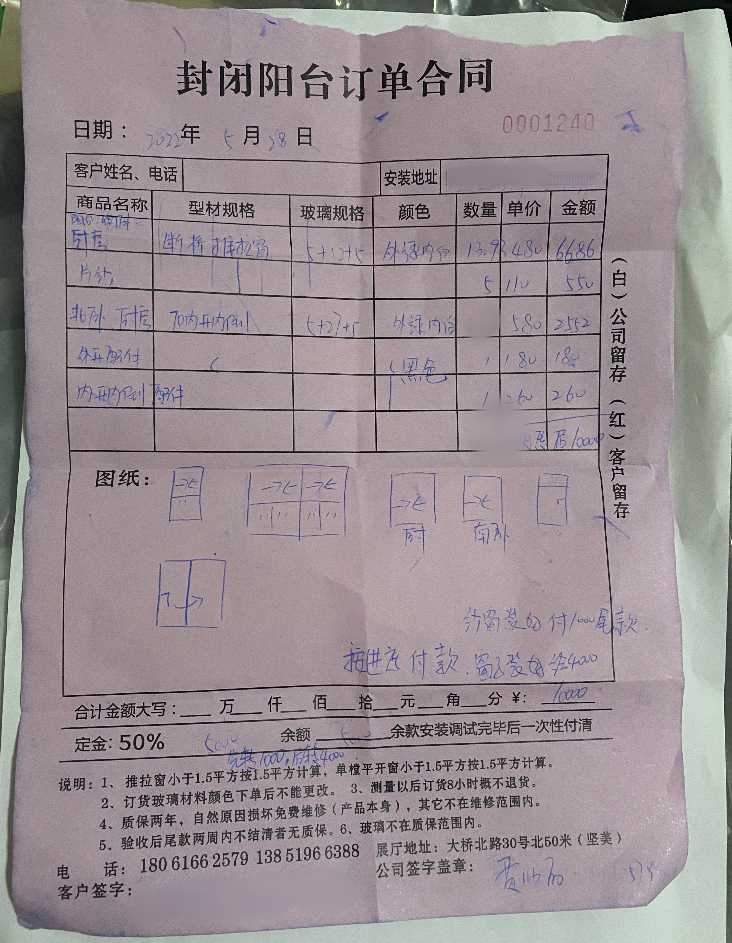 封闭阳台订单合同
日期： 2022年 5 月 28 日 0001240
客户姓名、电话 安装地址
商品名称 型材规格 玻璃规格 颜色 数量 单价 金额
厨房 断桥推拉窗 5+12+5 外绿内白 13.93 480 6686
5 110 550
北卧 厨房 70内开内倒 5+27+5 外绿内白 580 2552
外开配件 黑色 1 180 180
内开内倒 配件 1 260 260
后10000
（白）公司留存（红）客户留存
图纸：
厨 南卧
付1000尾款.
按进度付款.
4000
合计金额大写：___万___仟___佰___拾___元___角___分 ¥: 10000
定金：50% 5000 余额 5000 余款安装调试完毕后一次性付清
说明：1、推拉窗小于1.5平方按1.5平方计算，单樘平开窗小于1.5平方按1.5平方计算。
2、订货玻璃材料颜色下单后不能更改。 3、测量以后订货8小时概不退货。
4、质保两年，自然原因损坏免费维修（产品本身），其它不在维修范围内。
5、验收后尾款两周内不结清者无质保。6、玻璃不在质保范围内。
电 话：180 6166 2579 138 5196 6388 展厅地址：大桥北路30号北50米（坚美）
客户签字： 公司签字盖章：